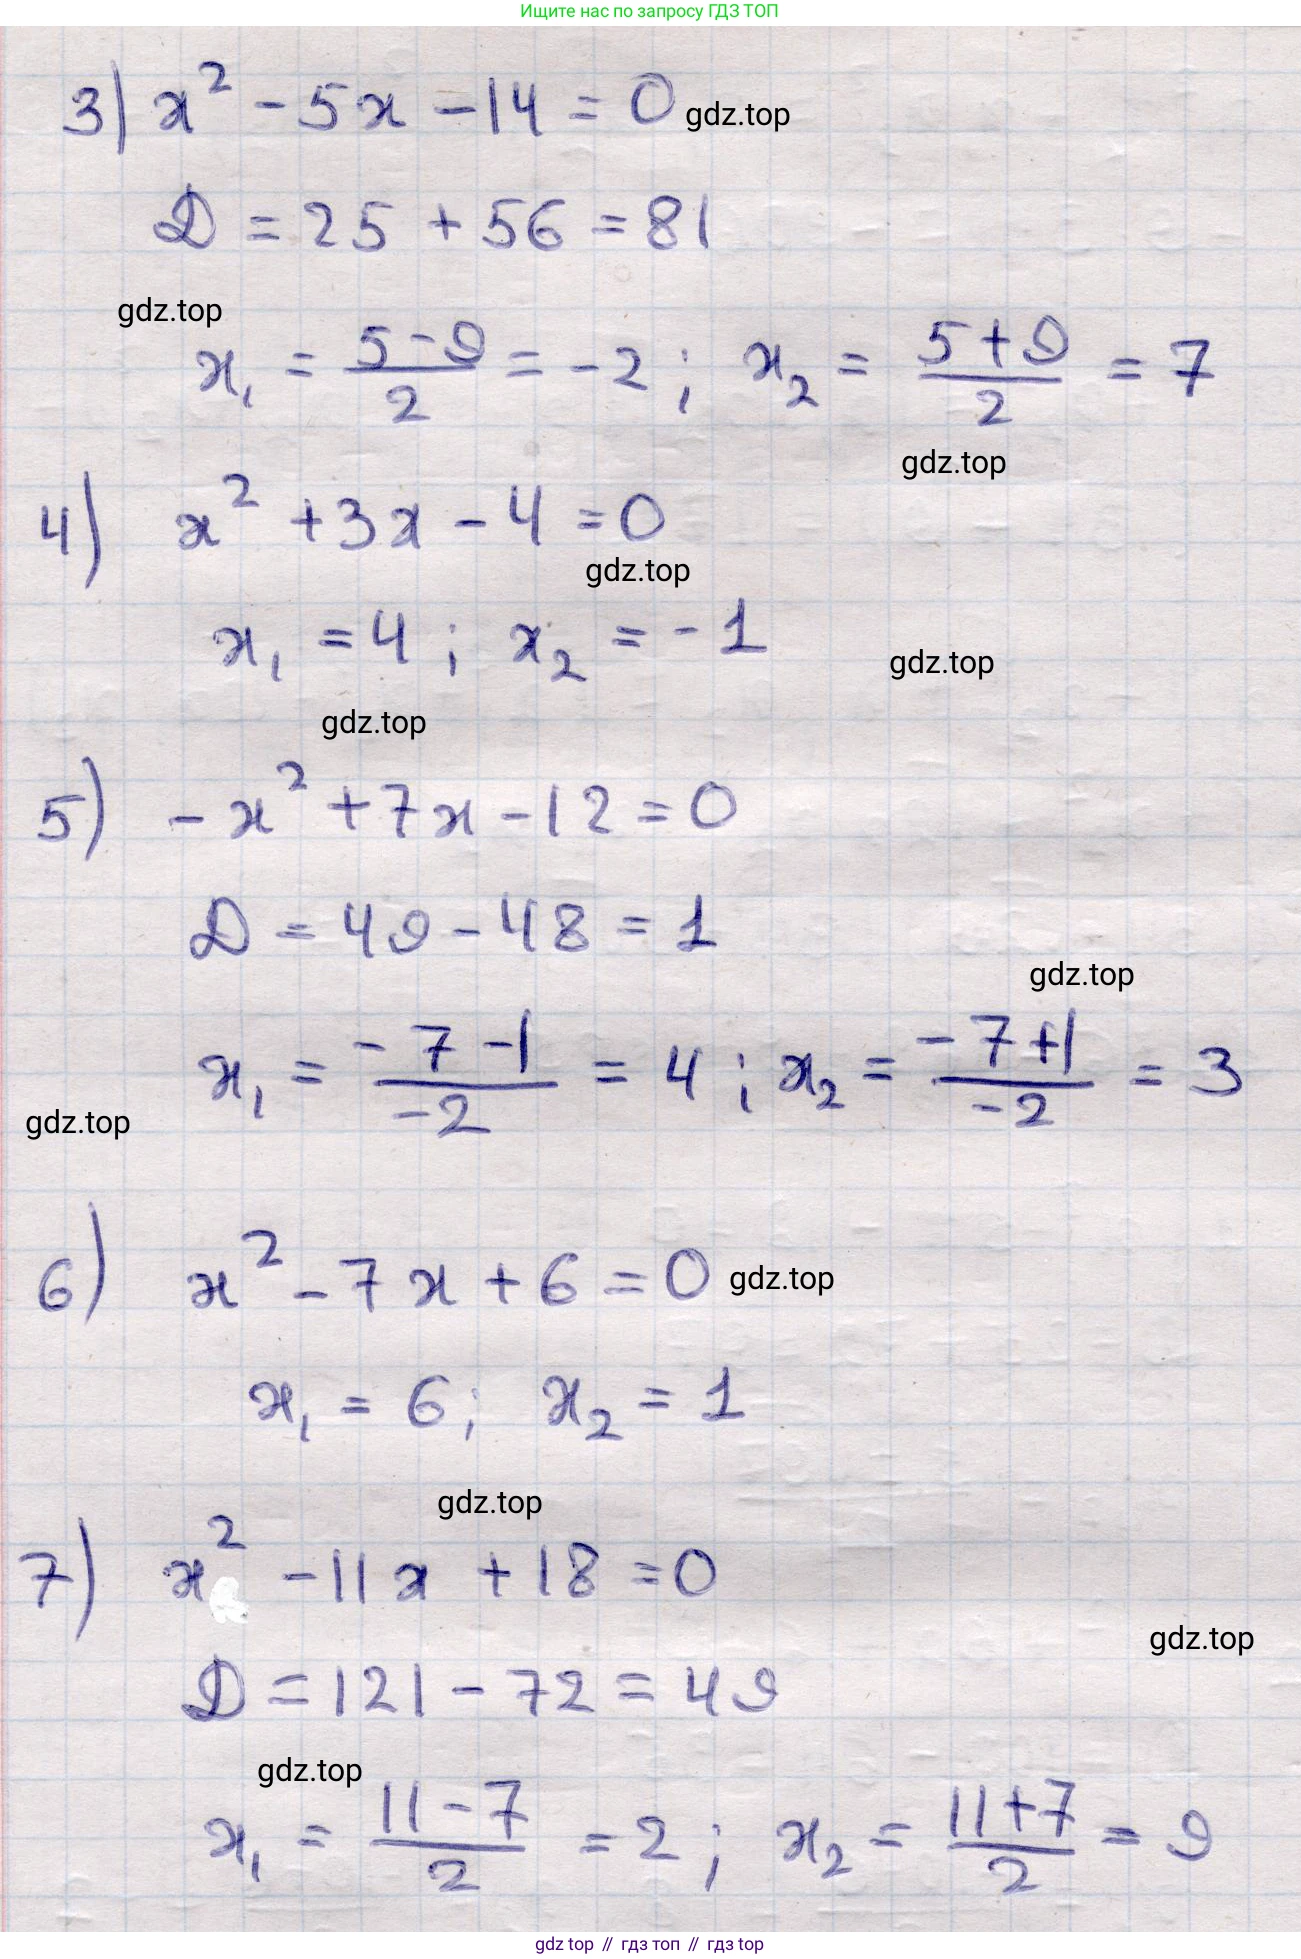 Ищите нас по запросу ГДЗ ТОП
3) x² - 5x - 14 = 0 gdz.top
D = 25 + 56 = 81
gdz.top
x₁ = (5 - 9)/2 = -2 ; x₂ = (5 + 9)/2 = 7
gdz.top
4) x² + 3x - 4 = 0
gdz.top
x₁ = 4 ; x₂ = - 1
gdz.top
gdz.top
5) - x² + 7x - 12 = 0
D = 49 - 48 = 1
gdz.top
x₁ = (- 7 - 1)/(-2) = 4 ; x₂ = (- 7 + 1)/(-2) = 3
gdz.top
6) x² - 7x + 6 = 0 gdz.top
x₁ = 6 ; x₂ = 1
gdz.top
7) x² - 11x + 18 = 0
gdz.top
D = 121 - 72 = 49
gdz.top
x₁ = (11 - 7)/2 = 2 ; x₂ = (11 + 7)/2 = 9
gdz top // гдз топ // гдз top